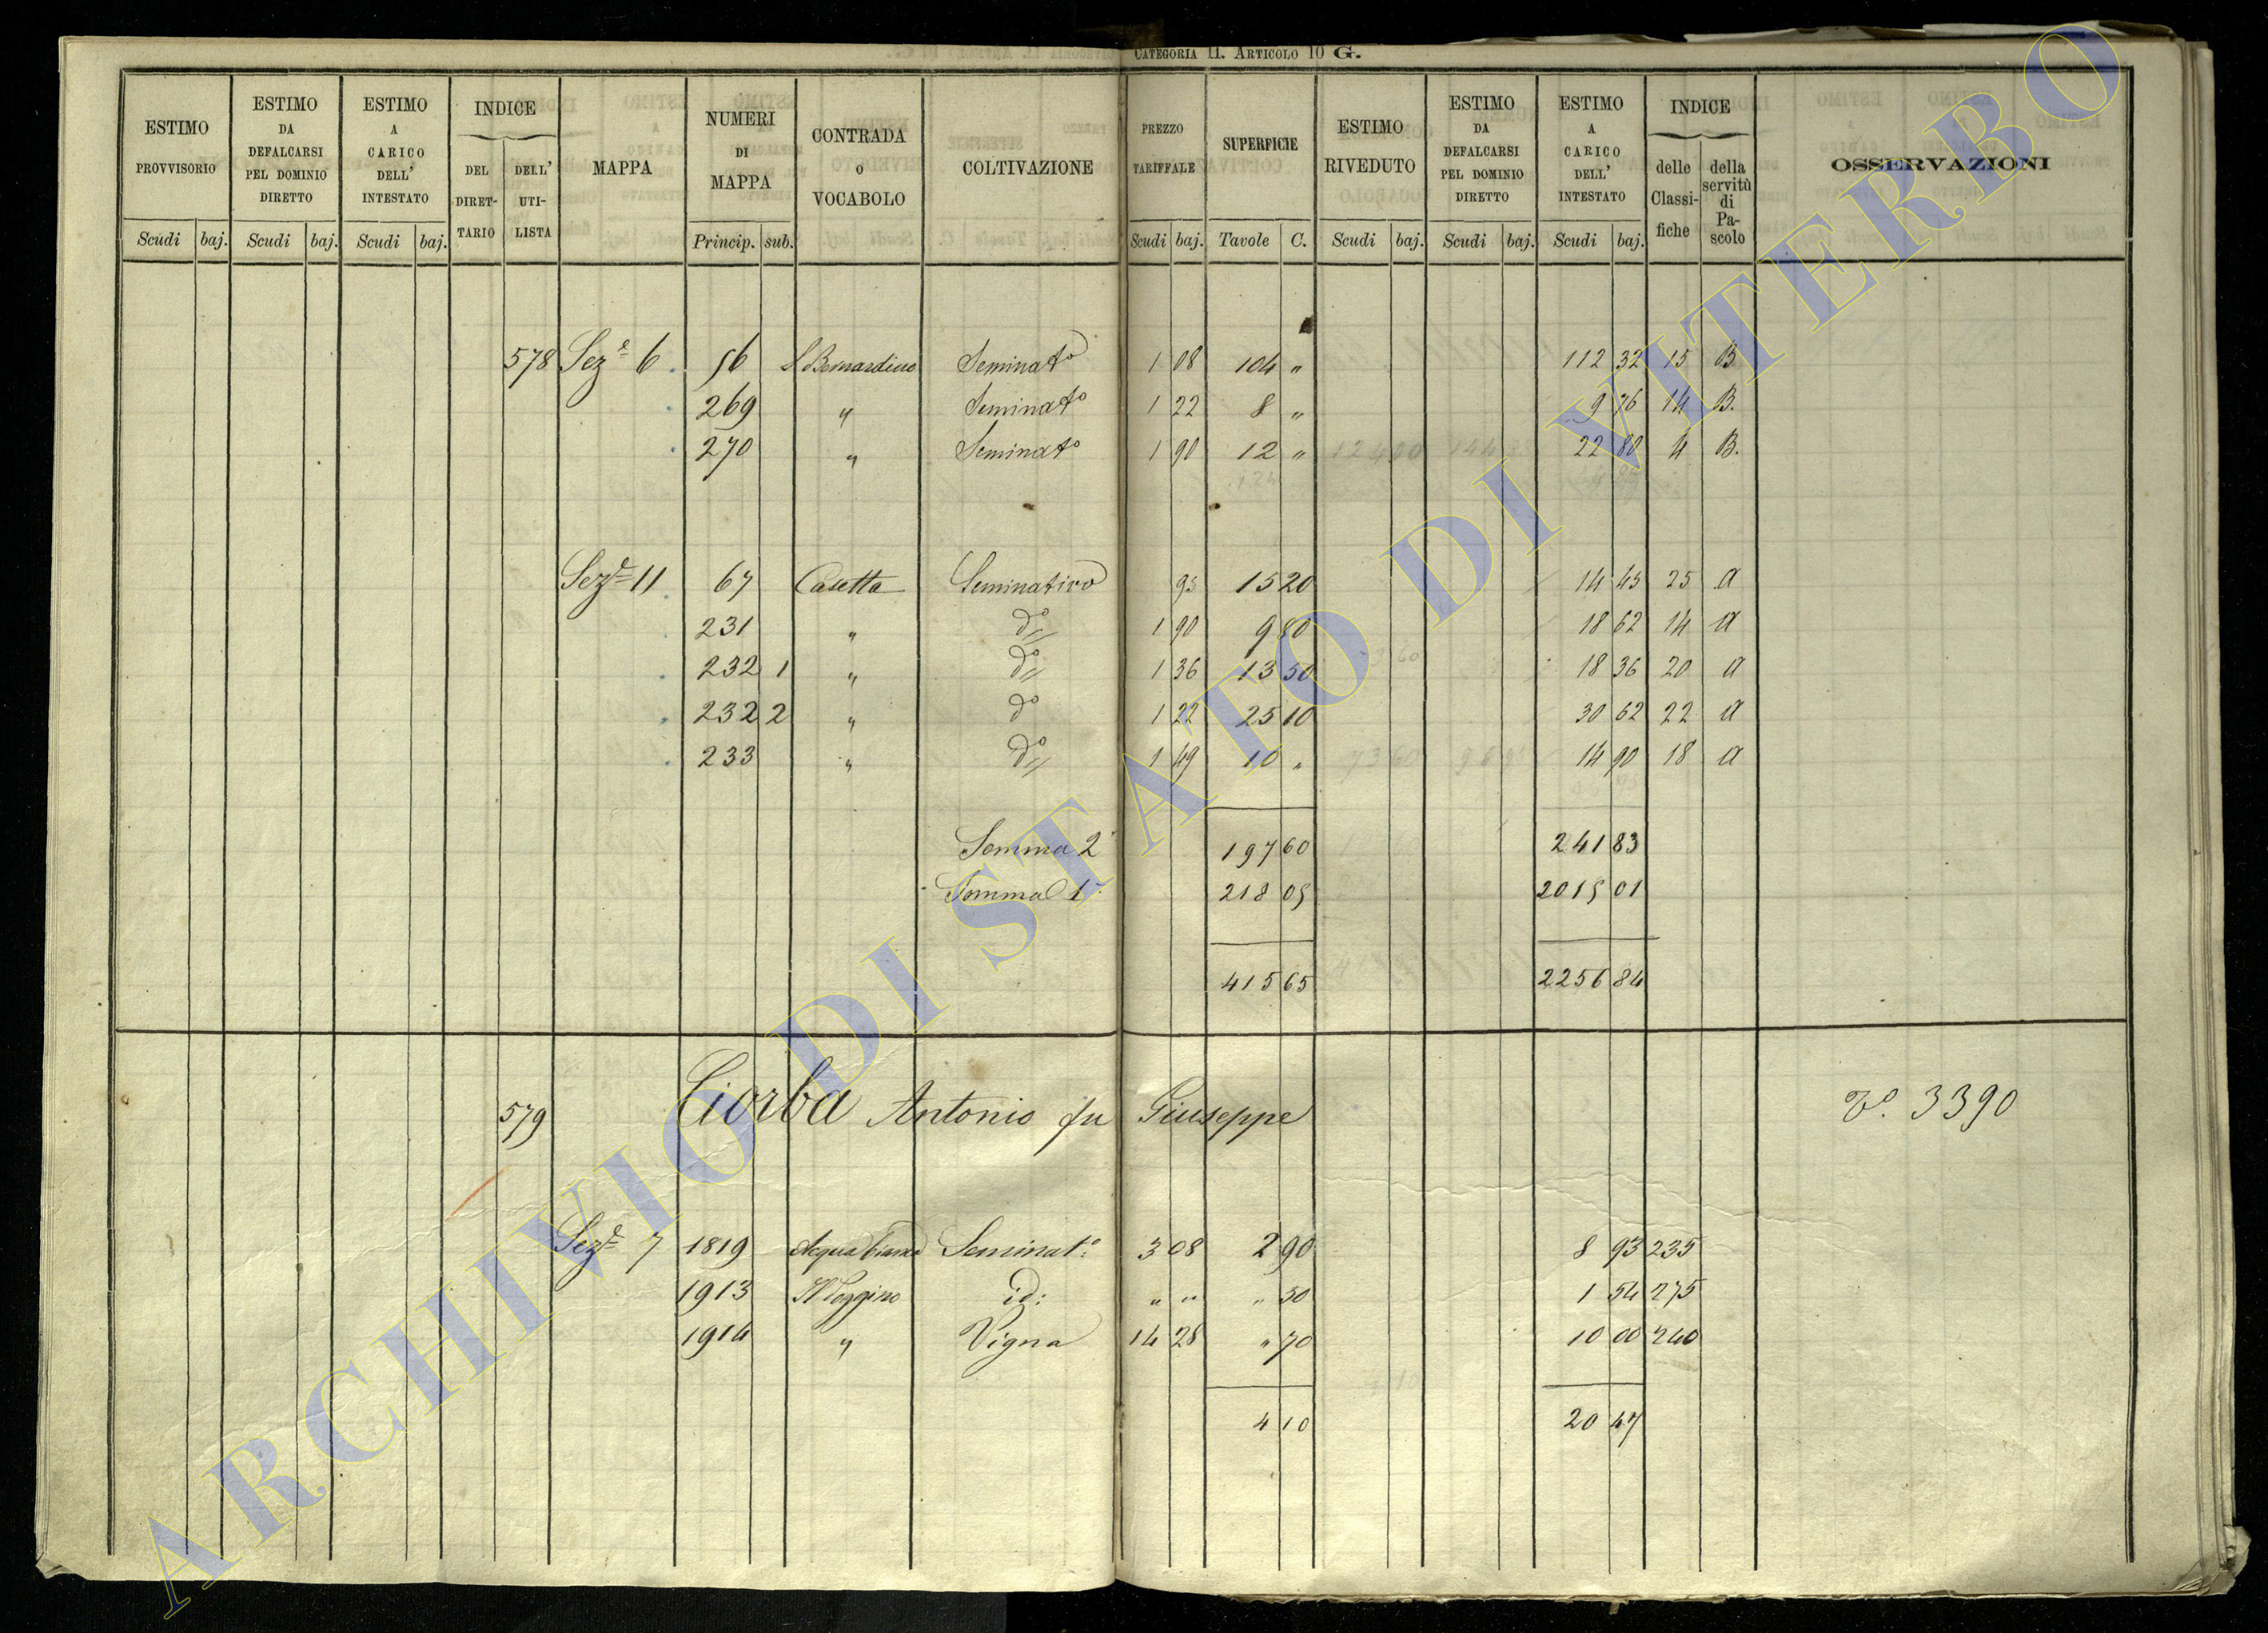 CATEGORIA II. ARTICOLO 10 G.
ESTIMO PROVVISORIO
ESTIMO DA DEFALCARSI PEL DOMINIO DIRETTO
ESTIMO A CARICO DELL' INTESTATO
INDICE
DEL DIRETTARIO
DELL' UTILISTA
MAPPA
NUMERI DI MAPPA
CONTRADA O VOCABOLO
COLTIVAZIONE
PREZZO TARIFFALE
SUPERFICIE
ESTIMO RIVEDUTO
ESTIMO DA DEFALCARSI PEL DOMINIO DIRETTO
ESTIMO A CARICO DELL' INTESTATO
INDICE
delle Classifiche
della servitù di Pascolo
OSSERVAZIONI
Scudi baj. Scudi baj. Scudi baj. Princip. sub. Scudi baj. Tavole C. Scudi baj. Scudi baj. Scudi baj.
578 Seze 6 56 S Bernardino Seminato 1 08 104 " 112 32 15 B
269 " Seminato 1 22 8 " 9 76 14 B.
270 " Seminato 1 90 12 " 22 80 4 B.
Seze 11 67 Casetta Seminativo 95 15 20 14 45 25 a
231 " do 1 90 9 80 18 62 14 a
232 1 " do 1 36 13 50 18 36 20 a
232 2 " do 1 22 25 10 30 62 22 a
233 " do 1 49 10 " 14 90 18 a
Somma 2 197 60 241 83
Somma 1 218 05 2015 01
415 65 2256 84
579 Ciorba Antonio fu Giuseppe Vo. 3390
Seze 7 1819 Acqua bianca Seminato: 3 08 2 90 8 93 235
1913 Il Poggino id: " " " 50 1 54 275
1914 " Vigna 14 28 " 70 10 00 240
4 10 20 47
ARCHIVIO DI STATO DI VITERBO